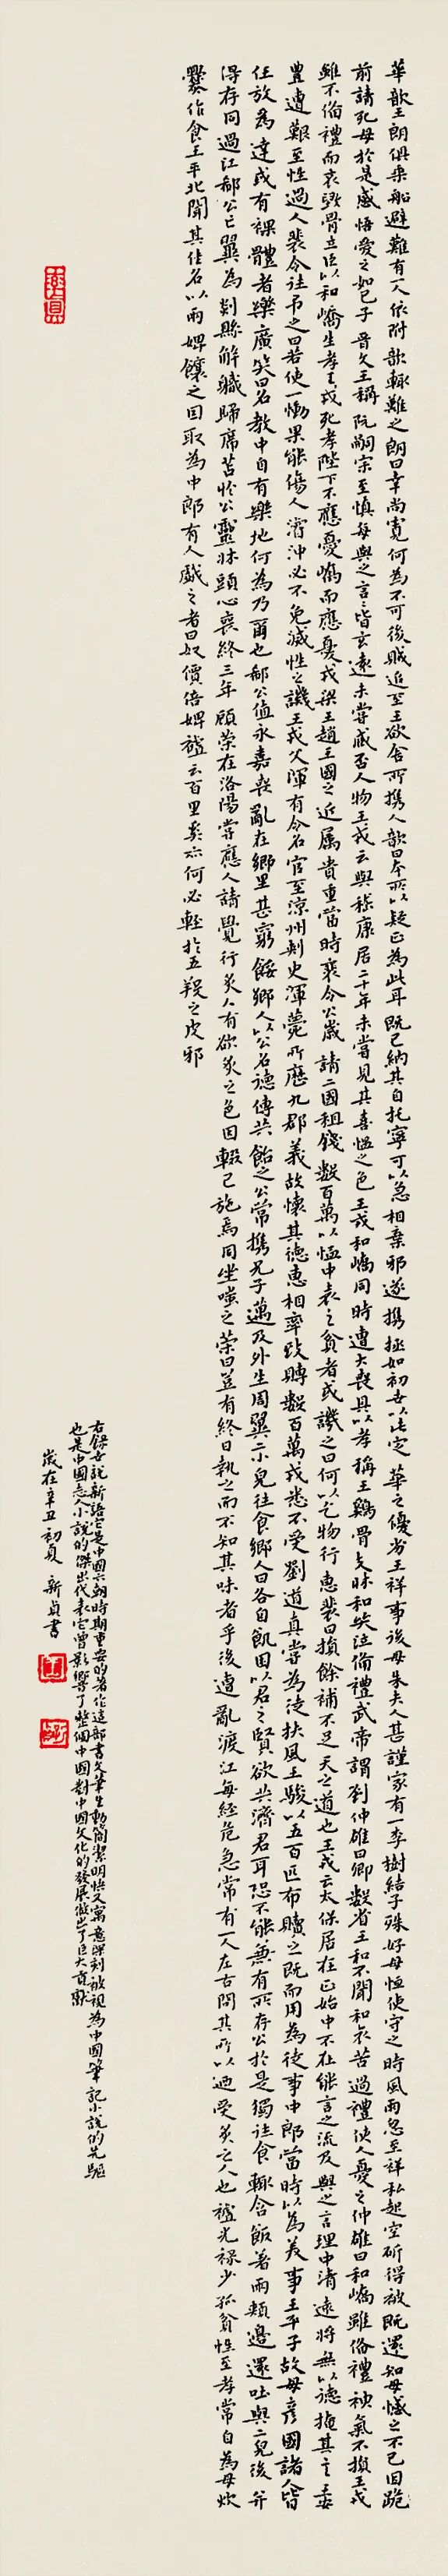 華歆王朗俱乘船避難有一人依附歆輒難之朗曰幸尚寬何為不可後賊追至王欲舍所攜人歆曰本所以疑正為此耳既已納其自托寧可以急相棄邪遂攜拯如初世以此定華王優劣王祥事後母朱夫人甚謹家有一李樹結子殊好母恒使守之時風雨忽至祥私起空斫得被既還知母憾之不已因跪
前請死母於是感悟愛之如己子晉文王稱阮嗣宗至慎每與之言言皆玄遠未嘗臧否人物王戎云與嵇康居二十年未嘗見其喜慍之色王戎和嶠同時遭大喪具以孝稱王鷄骨支牀和哭泣備禮武帝謂劉仲雄曰卿數省王和不聞和哀苦過禮使人憂之仲雄曰和嶠雖備禮神氣不損王戎
雖不備禮而哀毀骨立臣以和嶠生孝王戎死孝陛下不應憂嶠而應憂戎梁王趙王國之近屬貴重當時裴令公歲請二國租錢數百萬以恤中表之貧者或譏之曰何以乞物行惠裴曰損餘補不足天之道也王戎云太保居在正始中不在能言之流及與之言理中清遠將無以德掩其言王戎
豊遭艱至性過人裴令往弔之曰若使一慟果能傷人濬沖必不免滅性之譏王戎父渾有令名官至涼州刺史渾薨所歷九郡義故懷其德惠相率致賻數百萬戎悉不受劉道真嘗為徒扶風王駿以五百匹布贖之既而用為從事中郎當時以為美事王平子胡毋彥國諸人皆
任放為達或有裸體者樂廣笑曰名教中自有樂地何為乃爾也郗公值永嘉喪亂在鄉里甚窮餒鄉人以公名德傳共飴之公常攜兄子邁及外生周翼二小兒往食鄉人曰各自飢困以君之賢欲共濟君耳恐不能兼有所存公於是獨往食輒含飯著兩頰邊還吐與二兒後并
得存同過江郗公亡翼為剡縣解職歸席苫於公靈牀頭心喪終三年顧榮在洛陽嘗應人請覺行炙人有欲炙之色因輟己施焉同坐嗤之榮曰豈有終日執之而不知其味者乎後遭亂渡江每經危急常有一人左右問其所以迺受炙之人也祖光祿少孤貧性至孝常自為母炊
爨作食王平北聞其佳名以兩婢餉之因取為中郎有人戲之者曰奴價倍婢祖云百里奚亦何必輕於五羖之皮邪
右錄世說新語它是中國六朝時期重要的著作這部書文筆生動簡潔明快又寓意深刻被視為中國筆記小說的先驅
也是中國志人小說的傑出代表它曾影響了整個中國對中國文化的發展做出了巨大貢獻
歲在辛丑初夏 新貞書